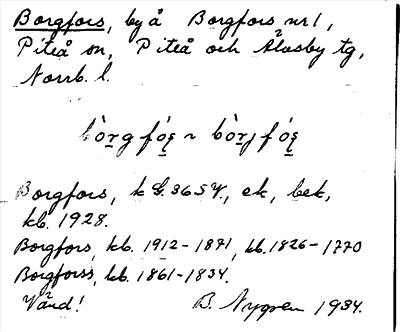 Borgfors, by å Borgfors nr 1,
Piteå sn, Piteå och Älvsby tg,
Norrb. l.
bòrg fós ~ bòrj fós
Borgfors, k G. 365 V., ek, bek,
kb. 1928.
Borgfors, kb. 1912-1871, kb. 1826-1770
Borgforss, kb. 1861-1834.
Vänd! B. Nygren 1934.